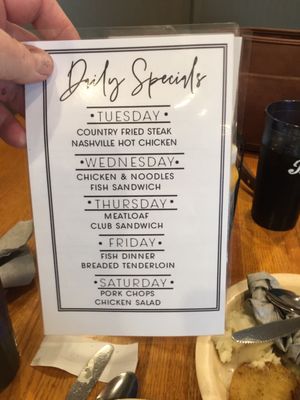 Daily Specials
• TUESDAY •
COUNTRY FRIED STEAK
NASHVILLE HOT CHICKEN
• WEDNESDAY •
CHICKEN & NOODLES
FISH SANDWICH
• THURSDAY •
MEATLOAF
CLUB SANDWICH
• FRIDAY •
FISH DINNER
BREADED TENDERLOIN
• SATURDAY •
PORK CHOPS
CHICKEN SALAD